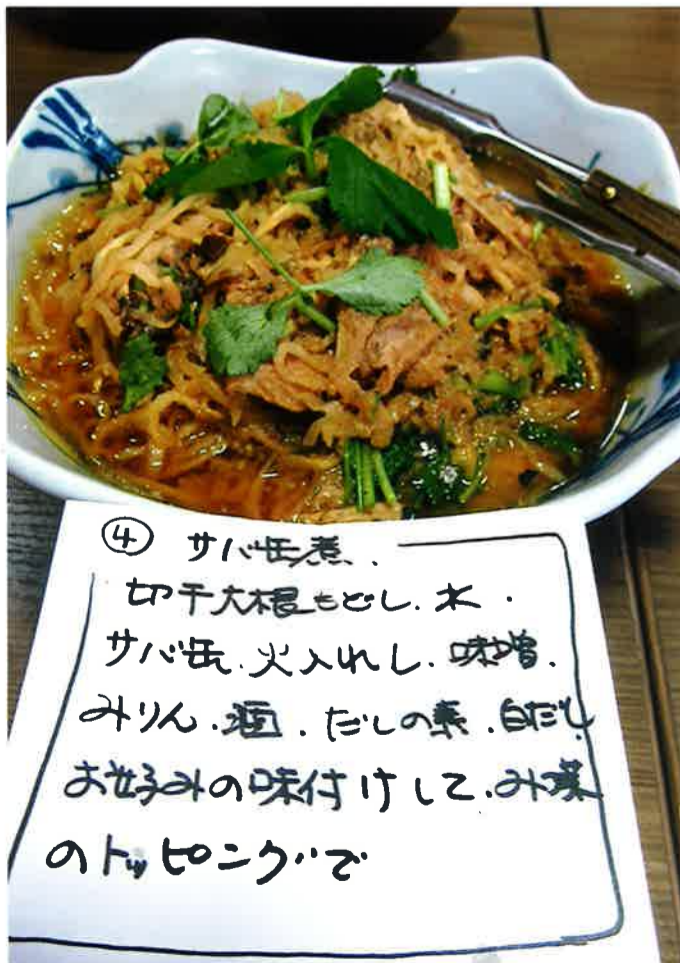 ④ サバ缶煮.
切干大根もどし.水.
サバ缶.火入れし.味噌.
みりん.酒.だしの素.白だし
お好みの味付けして.み葉
のトッピングで